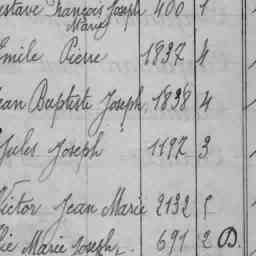 Gustave François Joseph 400 1
Marie
Emile Pierre 1837 4
Jean Baptiste Joseph 1838 4
Jules Joseph 1192 3
Victor Jean Marie 2132 5
Marie Joseph 691 2 D.